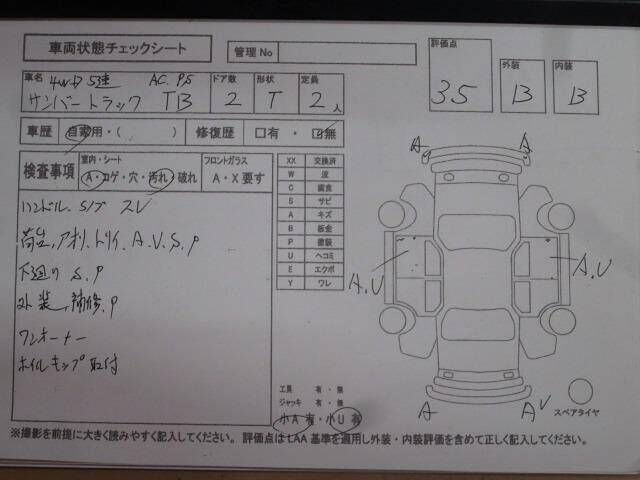 車両状態チェックシート
管理No
評価点
35
外装
B
内装
B
車名 4WD 5速 AC.PS
サンバートラック TB
ドア数
2
形状
T
定員
2人
車歴 自家用・( ) 修復歴 □有・☑無
検査事項
室内・シート
A・コゲ・穴・汚れ・破れ
フロントガラス
A・X要す
ハンドル. S/ブ スレ
荷台, アオリ, トリイ, A.V.S.P
下廻り S.P
外装, 補修.P
ワンオーナー
ホイルキャップ取付
XX 交換済
W 波
C 腐食
S サビ
A キズ
B 板金
P 塗装
U ヘコミ
E エクボ
Y ワレ
工具 有・無
ジャッキ 有・無
小A有・小U有
A
A
A.U
A.U
A
A
スペアタイヤ
※撮影を前提に大きく読みやすく記入してください。評価点はLAA基準を適用し外装・内装評価を含めて正しく記入してください。